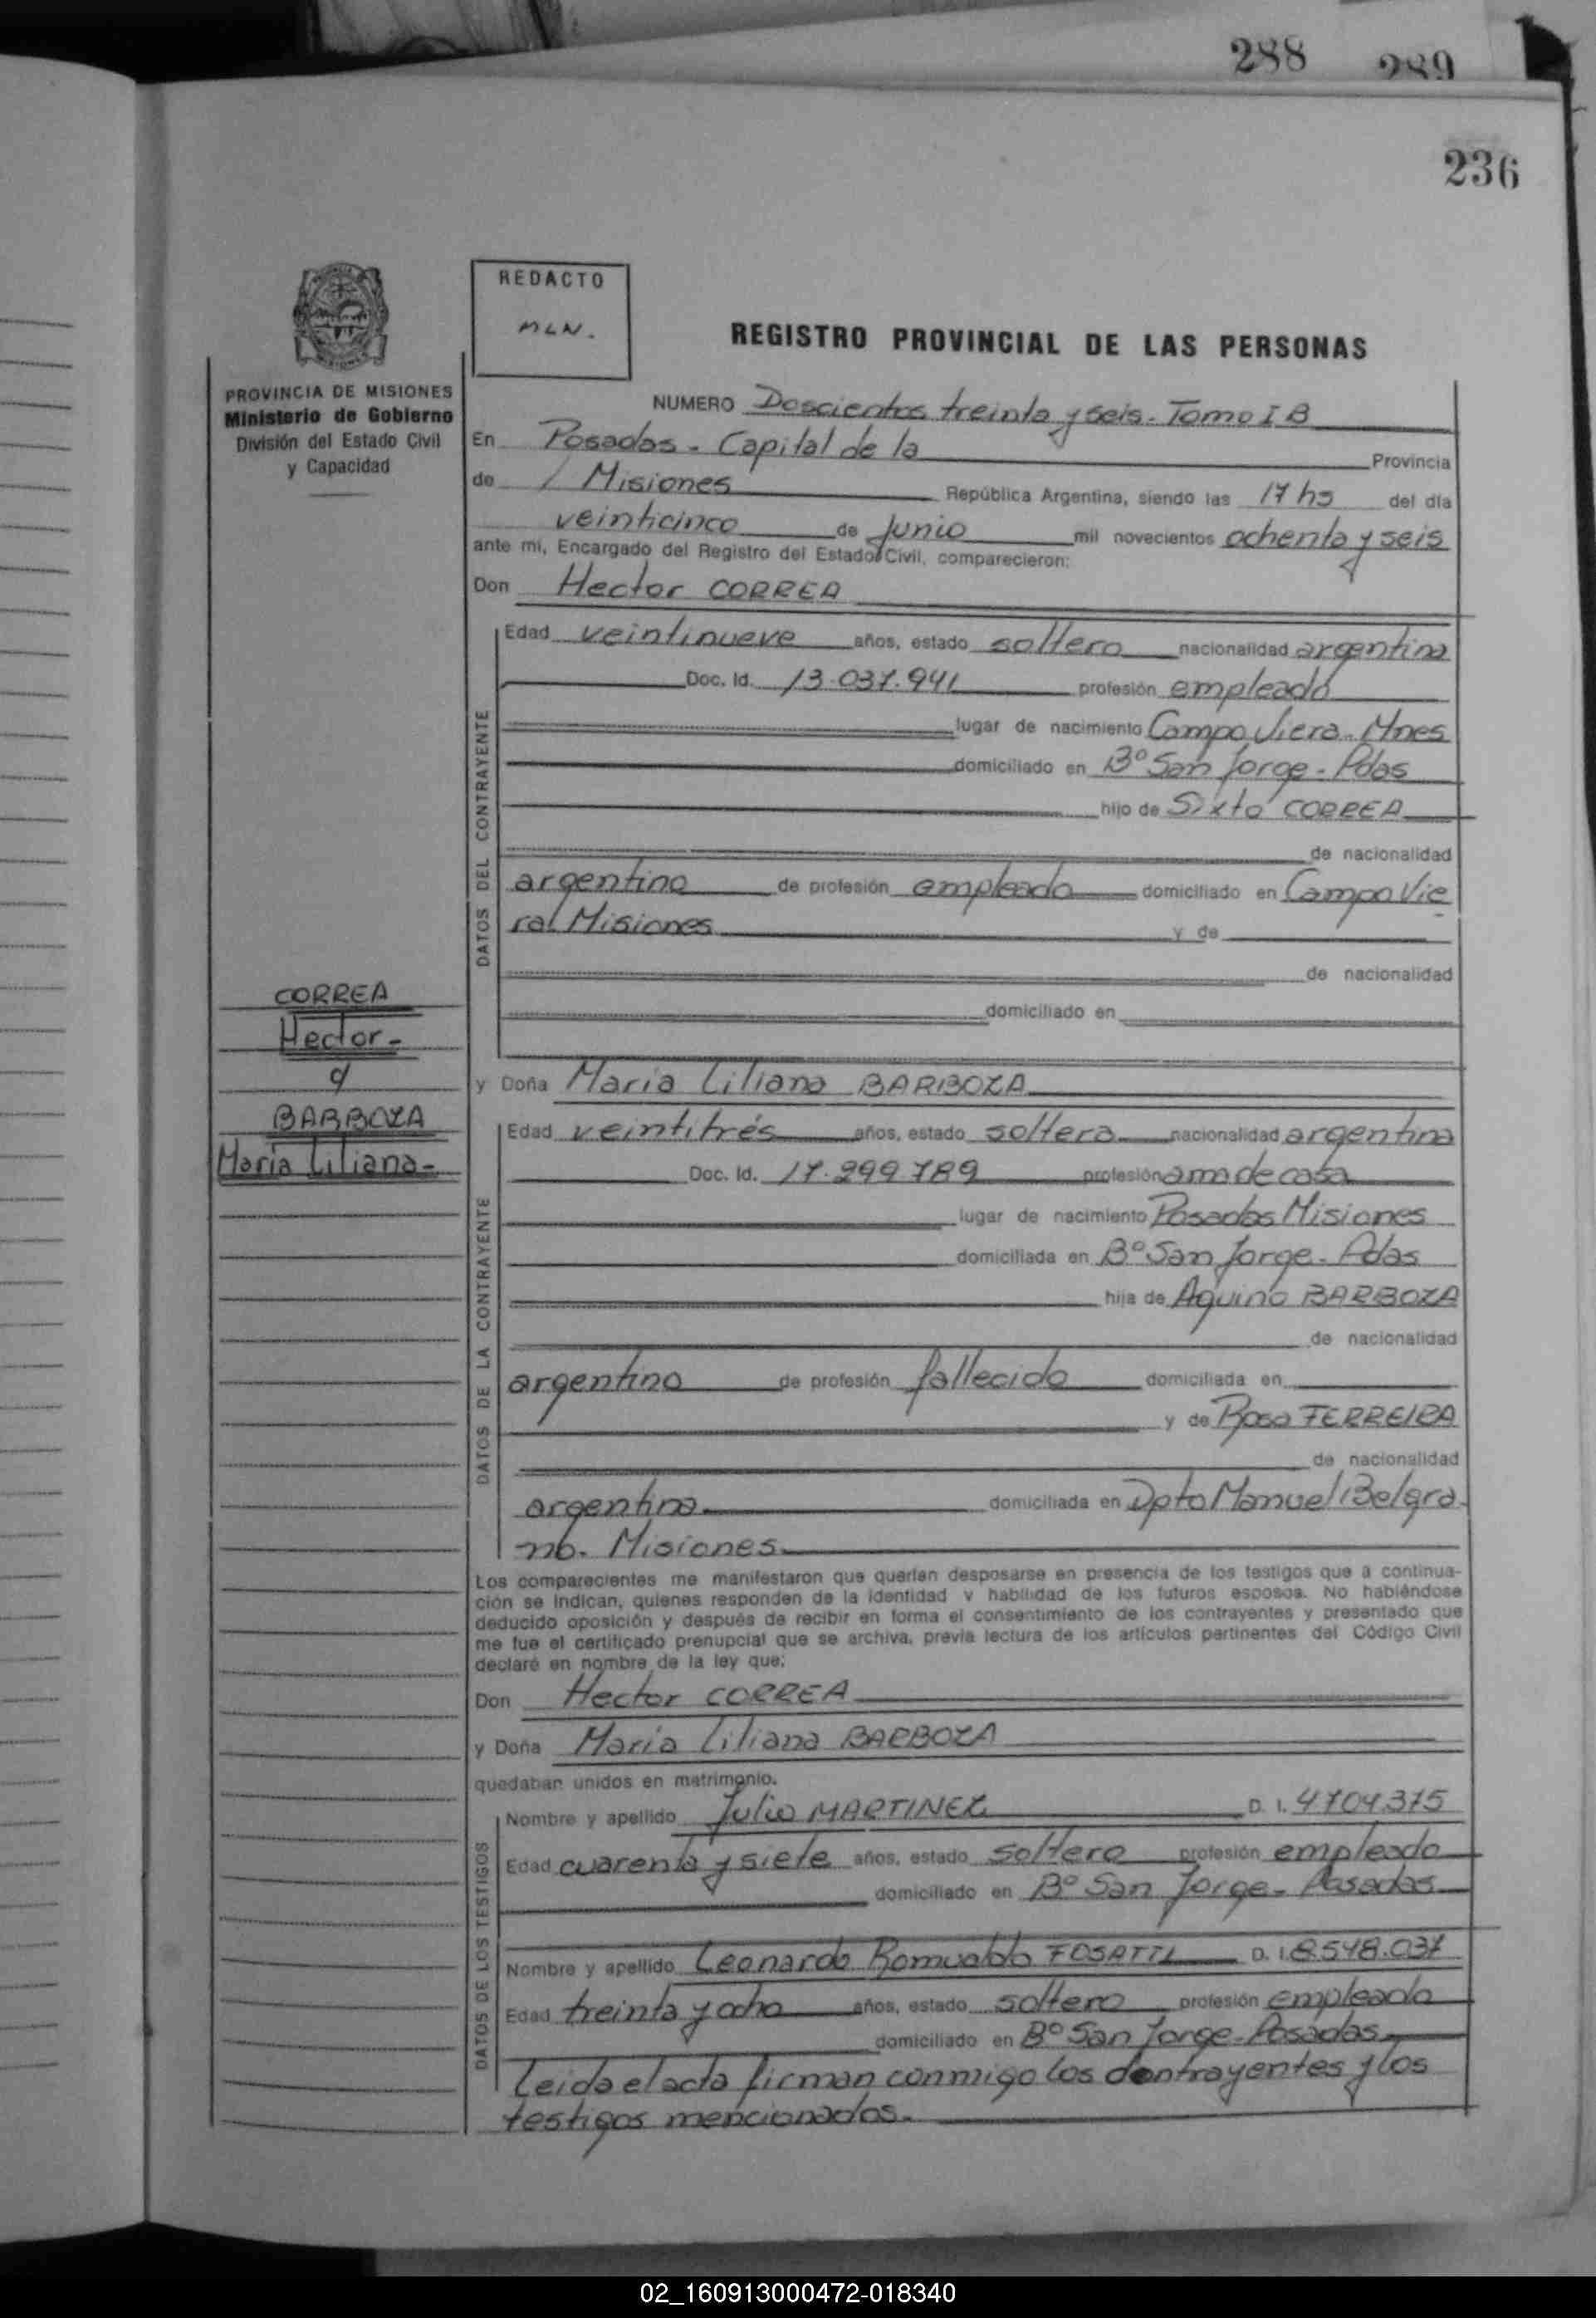 288 289
236
REDACTO
MLN.
REGISTRO PROVINCIAL DE LAS PERSONAS
PROVINCIA DE MISIONES
Ministerio de Gobierno
División del Estado Civil
y Capacidad
NUMERO Doscientos treinta y seis. Tomo I B
En Posadas - Capital de la Provincia
de / Misiones República Argentina, siendo las 17 hs del día
veinticinco de Junio mil novecientos ochenta y seis
ante mí, Encargado del Registro del Estado Civil, comparecieron:
Don Hector CORREA
DATOS DEL CONTRAYENTE
Edad veintinueve años, estado soltero nacionalidad argentina
Doc. Id. 13.037.941 profesión empleado
lugar de nacimiento Campo Viera - Mnes
domiciliado en Bº San Jorge - Pdas
hijo de Sixto CORREA
de nacionalidad
argentina de profesión empleado domiciliado en Campo Vie
ra/ Misiones y de
de nacionalidad
domiciliado en
CORREA
Hector -
c/
BARBOZA
María Liliana -
y Doña María Liliana BARBOZA
DATOS DE LA CONTRAYENTE
Edad veintitrés años, estado soltera nacionalidad argentina
Doc. Id. 17.299.789 profesión ama de casa
lugar de nacimiento Posadas Misiones
domiciliada en Bº San Jorge - Pdas
hija de Aquino BARBOZA
de nacionalidad
argentina de profesión fallecido domiciliada en
y de Rosa FERREIRA
de nacionalidad
argentina domiciliada en Dpto Manuel Belgra
no. Misiones
Los comparecientes me manifestaron que querían desposarse en presencia de los testigos que a continua-
ción se indican, quienes responden de la identidad y habilidad de los futuros esposos. No habiéndose
deducido oposición y después de recibir en forma el consentimiento de los contrayentes y presentado que
me fue el certificado prenupcial que se archiva, previa lectura de los artículos pertinentes del Código Civil
declaré en nombre de la ley que:
Don Hector CORREA
y Doña María Liliana BARBOZA
quedaban unidos en matrimonio.
DATOS DE LOS TESTIGOS
Nombre y apellido Julio MARTINEZ D. I. 4704375
Edad cuarenta y siete años, estado soltero profesión empleado
domiciliado en Bº San Jorge - Posadas
Nombre y apellido Leonardo Romualdo FOSATTI D. I. 8.548.037
Edad treinta y ocho años, estado soltero profesión empleado
domiciliado en Bº San Jorge - Posadas
Leida el acta firman conmigo los contrayentes y los
testigos mencionados.
02_160913000472-018340